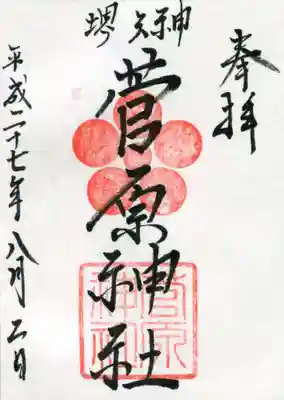 奉拝
堺天神
菅原神社
菅原
神社
平成二十七年八月二日